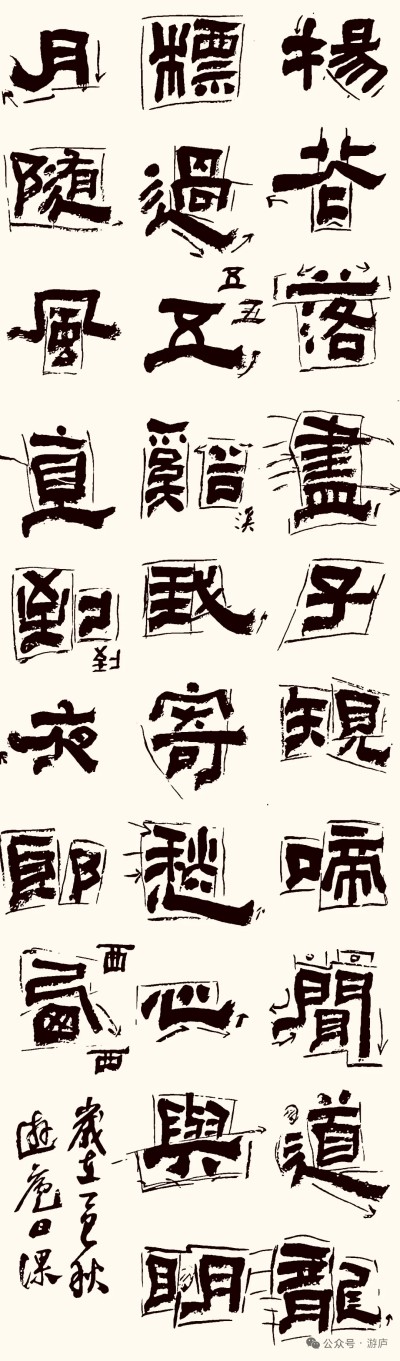 楊花落盡子規啼聞道龍
標過五谿我寄愁心與明
月隨風直到夜郎西
五
五
溪
到
西
西
歲在乙巳秋
游庐日課
公众号 · 游庐